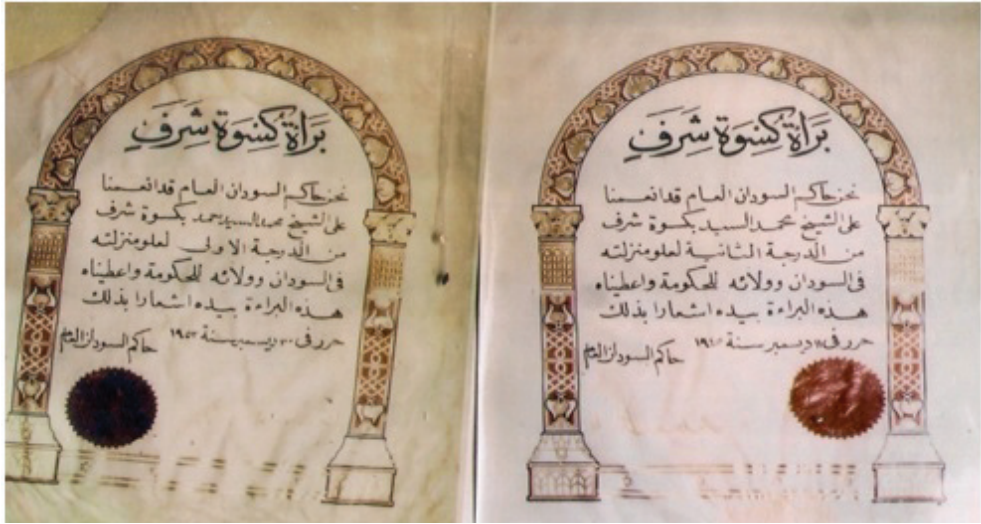 بَرَاةُ كُسْوَة شَرَفٍ
نحن حاكم السودان العام قد انعمنا
على الشيخ محمد السيد حمد بكسوة شرف
من الدرجة الاولى لعلو منزلته
فى السودان وولائه للحكومة واعطيناه
هذه البراءة بيده اشعارا بذلك
حرر فى ٣٠ ديسمبر سنة
حاكم السودان العام
بَرَاةُ كُسْوَة شَرَفٍ
نحن حاكم السودان العام قد انعمنا
على الشيخ محمد السيد بكسوة شرف
من الدرجة الثانية لعلو منزلته
فى السودان وولائه للحكومة واعطيناه
هذه البراءة بيده اشعارا بذلك
حرر فى ديسمبر سنة
حاكم السودان العام